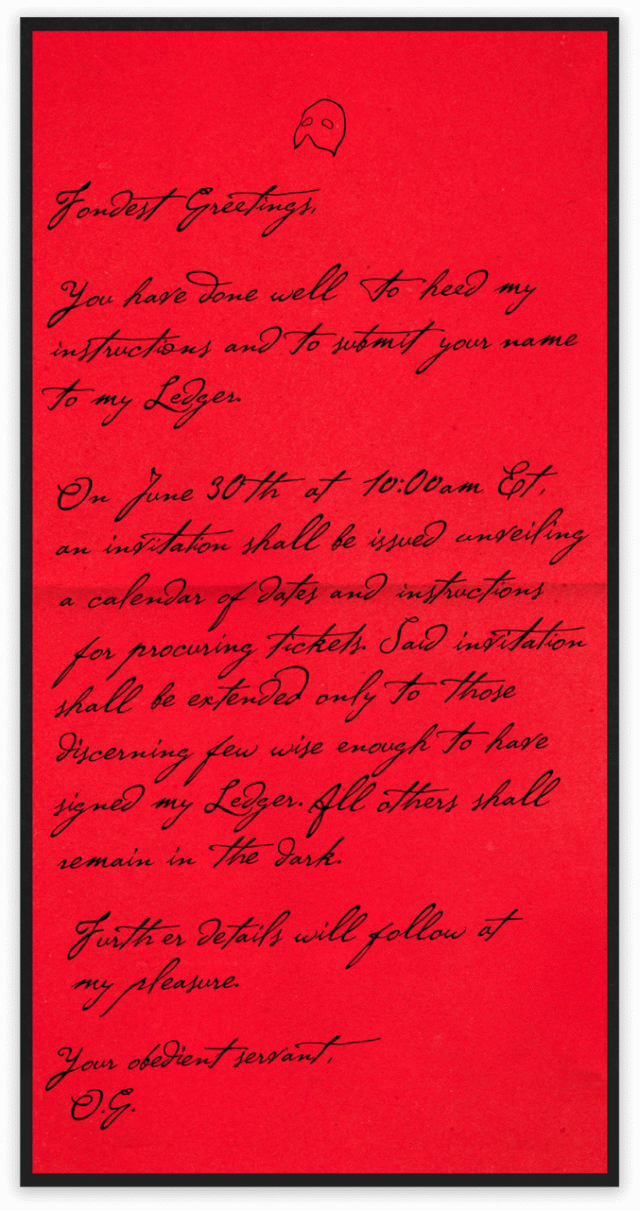 Fondest Greetings,
You have done well to heed my
instructions and to submit your name
to my Ledger.
On June 30th at 10:00am Et,
an invitation shall be issued unveiling
a calendar of dates and instructions
for procuring tickets. Said invitation
shall be extended only to those
discerning few wise enough to have
signed my Ledger. All others shall
remain in the dark.
Further details will follow at
my pleasure.
Your obedient servant,
O.G.